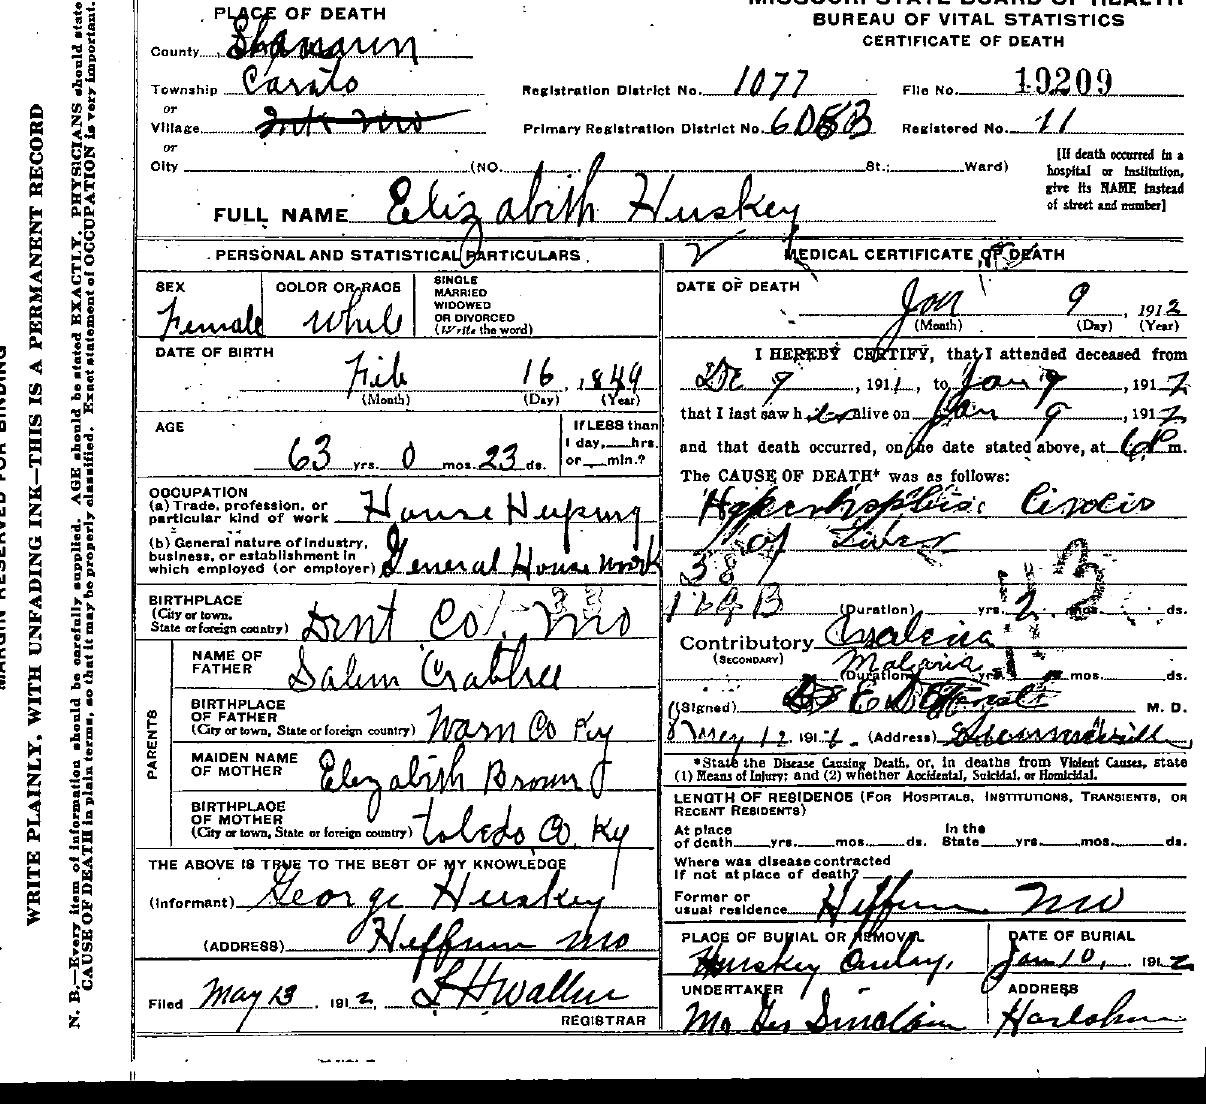 MISSOURI STATE BOARD OF HEALTH
BUREAU OF VITAL STATISTICS
CERTIFICATE OF DEATH
PLACE OF DEATH
County
Township
or
Village
or
City (NO. St.; Ward)
Registration District No. 1077 File No. 19209
Primary Registration District No. Registered No. 11
[If death occurred in a
hospital or institution,
give its NAME instead
of street and number]
FULL NAME Elizabith Huskey
PERSONAL AND STATISTICAL PARTICULARS
SEX Female
COLOR OR RACE White
SINGLE
MARRIED
WIDOWED
OR DIVORCED
(Write the word)
DATE OF BIRTH
Feb 16, 1849
(Month) (Day) (Year)
AGE
63 yrs. 0 mos. 23 ds.
If LESS than
1 day, hrs.
or min.?
OCCUPATION
(a) Trade, profession, or
particular kind of work House Keeping
(b) General nature of industry,
business, or establishment in
which employed (or employer) General House work
BIRTHPLACE
(City or town,
State or foreign country) Dent Co. Mo
PARENTS
NAME OF
FATHER Salem Crabtree
BIRTHPLACE
OF FATHER
(City or town, State or foreign country) Warn Co Ky
MAIDEN NAME
OF MOTHER Elizabith Brown
BIRTHPLACE
OF MOTHER
(City or town, State or foreign country) Toledo Co. Ky
THE ABOVE IS TRUE TO THE BEST OF MY KNOWLEDGE
(Informant) George Huskey
(ADDRESS) Heffrun Mo
Filed May 13, 1912, Wallen
REGISTRAR
MEDICAL CERTIFICATE OF DEATH
DATE OF DEATH
Jan 9, 1912
(Month) (Day) (Year)
I HEREBY CERTIFY, that I attended deceased from
De 9, 1911, to Jan 9, 1912
that I last saw h alive on Jan 9, 1912
and that death occurred, on the date stated above, at 6 P m.
The CAUSE OF DEATH* was as follows:
Hypertrophic
of Liver
(Duration) yrs. mos. ds.
Contributory
(SECONDARY) Malaria
(Duration) yrs. mos. ds.
(Signed) M. D.
May 12 191 (Address)
*State the Disease Causing Death, or, in deaths from Violent Causes, state
(1) Means of Injury; and (2) whether Accidental, Suicidal, or Homicidal.
LENGTH OF RESIDENCE (FOR HOSPITALS, INSTITUTIONS, TRANSIENTS, OR
RECENT RESIDENTS)
At place In the
of death yrs. mos. ds. State yrs. mos. ds.
Where was disease contracted
if not at place of death?
Former or
usual residence Heffrun Mo
PLACE OF BURIAL OR REMOVAL
Huskey
DATE OF BURIAL
Jan 10, 1912
UNDERTAKER
ADDRESS
MARGIN RESERVED FOR BINDING
WRITE PLAINLY, WITH UNFADING INK—THIS IS A PERMANENT RECORD
N. B.—Every item of information should be carefully supplied. AGE should be stated EXACTLY. PHYSICIANS should state
CAUSE OF DEATH in plain terms, so that it may be properly classified. Exact statement of OCCUPATION is very important.